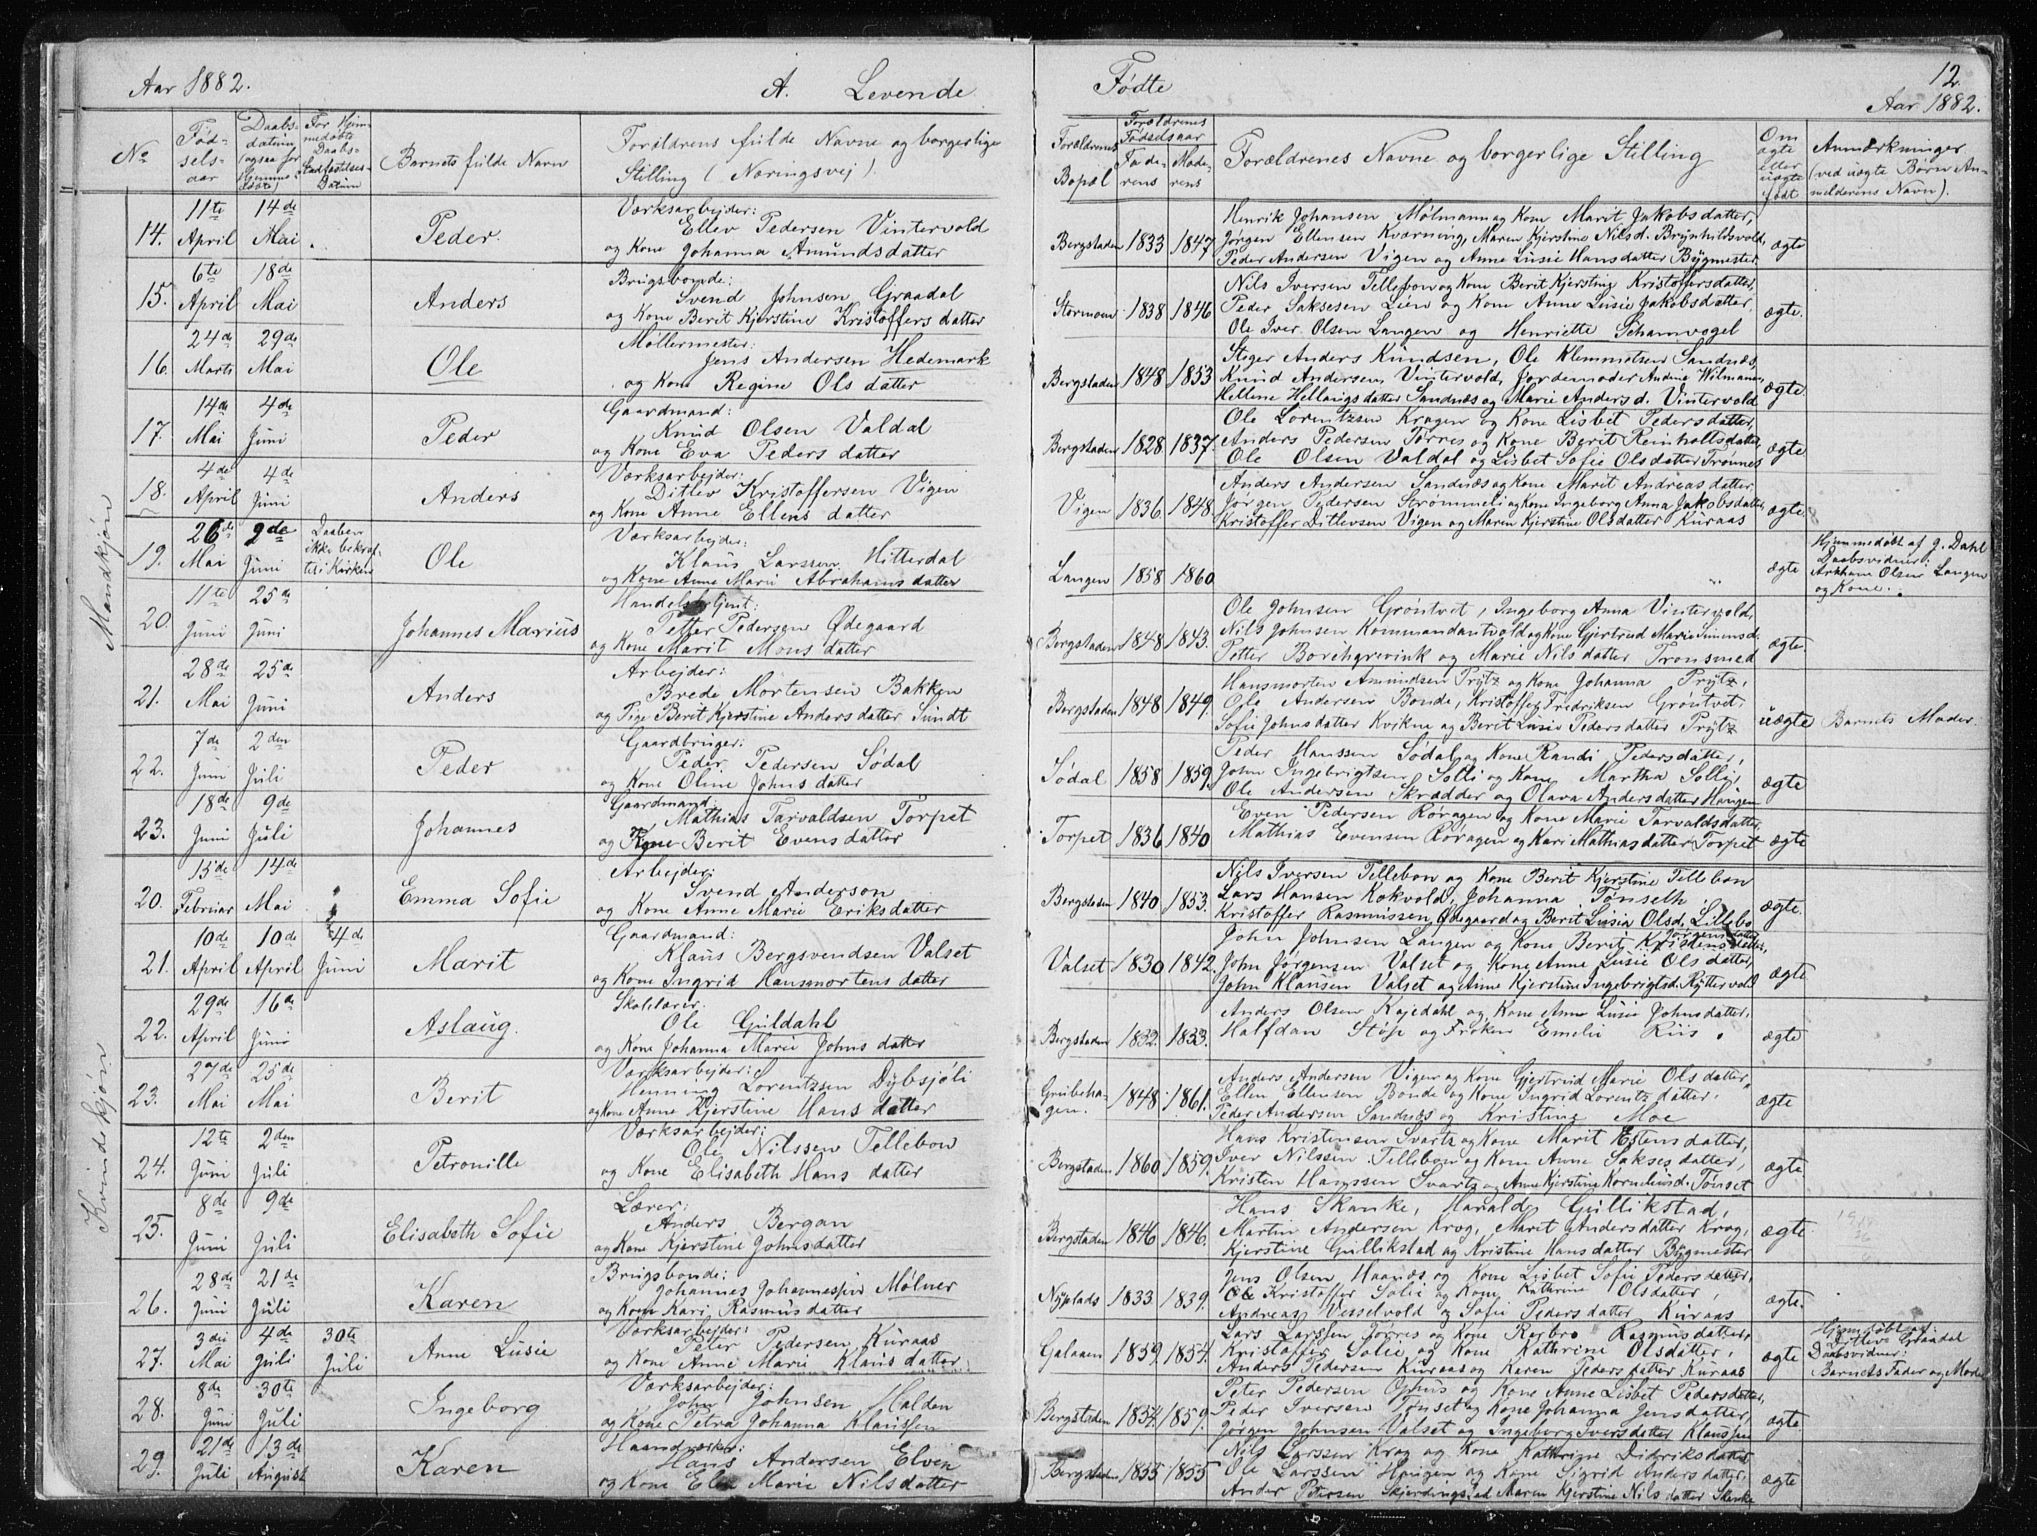 Aar 1882.
A. Levende
Fødte
12
Aar 1882.
No
Fød-
sels-
aar
Daabs-
datum
(ogsaa for
Hjemme-
døbte)
For Hjem-
medøbte
Daabs-
Stadfæstelses-
Datum
Barnets fulde Navn
Forældrenes fulde Navne og borgerlige
Stilling (Næringsvej).
Forældrenes
Bopæl
Forældrenes
Fødselsaar
Fade-
rens
Mode-
rens
Forældrenes Navne og borgerlige Stilling
Om
ægte
eller
uægte
født
Anmærkninger
(ved uægte Børn An-
melderens Navn).
Mandkjøn
14. 11te April 14de Mai Peder.
Værksarbejder:
Ellev Pedersen Vintervold
og Kone Johanna Amundsdatter
Bergstaden 1833 1847
Henrik Johansen Mølmann og Kone Marit Jakobsdatter,
Jørgen Ellensen Kværneng, Maren Kjerstine Nilsd. Brynhildsvold,
Peder Andersen Vigen og Anne Lusie Hansdatter Bygmester
ægte
15. 6te April 18de Mai Anders
Brugsbonde:
Svend Johnsen Graadal
og Kone Berit Kjerstine Kristoffersdatter
Stormoen 1838 1846
Nils Iversen Tellebon og Kone Berit Kjerstine Kristoffersdatter,
Peder Saksesen Lien og Kone Anne Lusie Jakobsdatter,
Ole Iver Olsen Langen og Henriette Schanvogel
ægte.
16. 24de Marts 29de Mai Ole
Møllermester:
Jens Andersen Hedemark
og Kone Regine Olsdatter
Bergstaden 1848 1853
Stiger Anders Knudsen, Ole Klemmetsen Sandnæs,
Knud Andersen Vintervold, Jordemoder Andrea Wilmann,
Hellene Hellingsdatter Sandnæs og Marie Andersd. Vintervold
ægte.
17. 14de Mai 4de Juni Peder
Gaardmand:
Knud Olsen Valdal
og Kone Eva Pedersdatter
Bergstaden 1828 1837.
Ole Lorentzsen Kragen og Kone Lisbet Pedersdatter,
Anders Pedersen Tørres og Kone Berit Reinholtsdatter,
Ole Olsen Valdal og Lisbet Sofie Olsdatter Trønnes
ægte
18. 4de April 4de Juni Anders
Værksarbejder:
Ditlev Kristoffersen Vigen
og Kone Anne Ellensdatter
Vigen 1836 1848
Anders Andersen Sandnæs og Kone Marit Andreasdatter
Jørgen Pedersen Strømmeli og Kone Ingeborg Anna Jakobsdatter,
Kristoffer Ditlevsen Vigen og Maren Kjerstine Olsdatter Kuraas
ægte.
19. 26de Mai 9de Juni Daaben
ikke bekræf-
tet i Kirken
Ole
Værksarbejder:
Klaus Larssen Hitterdal
og Kone Anne Marie Abrahamsdatter
Langen 1858 1860
"
ægte
Hjemmedøbt af J. Dahl
Daabsvidner:
Olsen Langen
og Kone.
20. 11te Juni 25de Juni Johannes Marius
Handelsbetjent:
Petter Pedersen Ødegaard
og Kone Marit Monsdatter
Bergstaden 1848 1843.
Ole Johnsen Grøntvet, Ingeborg Anna Vintervold,
Nils Johnsen Kommandantvold og Kone Gjertrud Marie Simensd.
Petter Borchgrevink og Marie Nilsdatter Tronsmed
ægte.
21. 28de Mai 25de Juni Anders
Arbejder:
Brede Mortensen Bakken
og Pige Berit Kjerstine Andersdatter Sundt
Bergstaden 1848 1849.
Hansmorten Amundsen Prytz og Kone Johanna Prytz,
Ole Andersen Bonde, Kristoffer Fredriksen Grøntvet,
Sofie Johnsdatter Kvikne og Berit Lusie Pedersdatter Prytz
uægte Barnets Moder.
22. 7de Juni 2den Juli Peder
Gaardbruger:
Peder Pedersen Sødal
og Kone Oline Johnsdatter
Sødal 1858 1859.
Peder Hanssen Sødal og Kone Randi Pedersdatter,
John Ingebrigtsen Solli og Kone Martha Solli,
Ole Andersen Skrædder og Olava Andersdatter Haugen
ægte
23. 18de Juni 9de Juli Johannes
Gaardmand:
Mathias Tarvaldsen Torpet
og Kone Berit Evensdatter
Torpet 1836 1840
Even Pedersen Røragen og Kone Marie Tarvaldsdatter,
Mathias Evensen Røragen og Kari Mathiasdatter Torpet
ægte
Kvindekjøn
20. 15de Februar 14de Mai Emma Sofie
Arbejder:
Svend Anderson
og Kone Anne Marie Eriksdatter
Bergstaden 1840 1853.
Nils Iversen Tellebon og Kone Berit Kjerstine Tellebon
Lars Hansen Kokvold, Johanna Tønseth
Kristoffer Rasmussen Ødegaard og Berit Lusia Olsd. Lillebo
ægte.
21. 10de April 10de April 4de Juni Marit
Gaardmand:
Klaus Bergsvendsen Valset
og Kone Ingrid Hansmortensdatter
Valset 1830 1842.
John Johnsen Langen og Kone Berit Jørgensdatter,
John Jørgensen Valset og Kone Anne Lusie Olsdatter,
John Klausen Valset og Anne Kjerstine Ingebrigtsd. Ryttervold
ægte
22. 29de April 16de Juni Aslaug.
Skolelærer:
Ole Guldahl
og Kone Johanna Marie Johnsdatter
Bergstaden 1832. 1833.
Anders Olsen Kojedahl og Kone Anne Lusie Johnsdatter,
Halfdan Støp og Frøken Emelie Riis.
ægte
23. 27de Mai 25de Mai Berit
Værksarbejder:
Henning Lorentzsen Dybsjøli
og Kone Anne Kjerstine Hansdatter
Grubeha-
gen. 1848 1861.
Anders Andersen Vigen og Kone Gjertrud Marie Olsdatter,
Ellen Ellensen Bonde og Kone Ingrid Lorentzdatter,
Peder Andersen Sandnæs og Kristine Moe
ægte
24. 12te Juni 2den Juli Petronille
Værksarbejder:
Ole Nilssen Tellebon
og Kone Elisabeth Hansdatter
Bergstaden 1860 1859.
Hans Kristensen Svartz og Kone Marit Estensdatter,
Iver Nilssen Tellebon og Kone Anne Saksesdatter,
Kristen Hanssen Svartz og Anne Kjerstine Korneliusd. Tønset
ægte
25. 8de Juni 9de Juli Elisabeth Sofie
Lærer:
Anders Bergan
og Kone Kjerstine Johnsdatter
Bergstaden 1846 1846.
Hans Skanke, Harald Gullikstad,
Martin Andersen Krog, Marit Andersdatter Krog,
Kjerstine Gullikstad og Kristine Hansdatter Bygmester
ægte
26. 28de Juni 21de Juli Karen
Brugsbonde:
Johannes Johannessen Mølner
og Kone Kari Rasmusdatter
Nyplads 1833 1839.
Jens Olsen Haanæs og Kone Lisbet Sofie Pedersdatter,
Ole Kristoffer Solie og Kone Kathrine Olsdatter,
Andreas Vesselvold og Sofie Pedersdatter Kuraas
ægte.
27. 3die Mai 4de Juli 30te Juli Anne Lusie
Værksarbejder:
Peter Pedersen Kuraas
og Kone Anne Marie Klausdatter
Galaaen 1859. 1854.
Lars Larssen Jørres og Kone Barbro Rasmusdatter,
Kristoffer Solie og Kone Kathrine Olsdatter,
Anders Pedersen Kuraas og Karen Pedersdatter Kuraas
ægte
Hjemdøbt af:
Ditlev Graadal
Daabsvidner:
Barnets Fader og Moder
28. 8de Juni 30te Juli Ingeborg
Værksarbejder:
John Johnsen Halden
og Kone Petra Johanna Klaussen
Bergstaden 1854. 1859.
Peter Pedersen Ophus og Kone Anne Lisbet Pedersdatter,
Peder Iversen Tønset og Kone Johanna Jensdatter,
Jørgen Johnsen Valset og Ingeborg Iversdatter Klaussen
ægte
29. 21de Juli 13de August Karen
Haandværker:
Hans Andersen Elven
og Kone Marie Nilsdatter
Bergstaden 1855 1855
Nils Larssen Krog og Kone Kathrine Didriksdatter
Ole Larssen Haugen og Kone Sigrid Andersdatter,
Ander Petersen Skjerdingstad Maren Kjerstine Nilsdatter Skanke
ægte